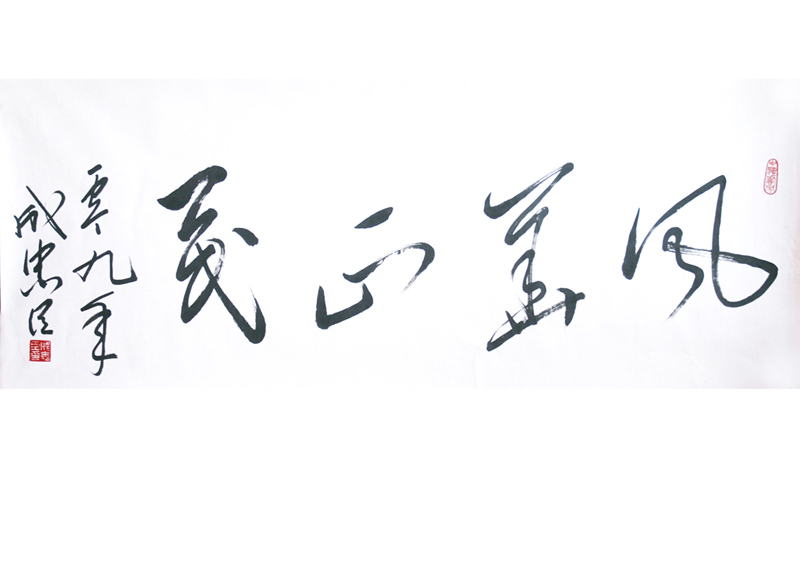 风华正茂
零九年
成忠臣